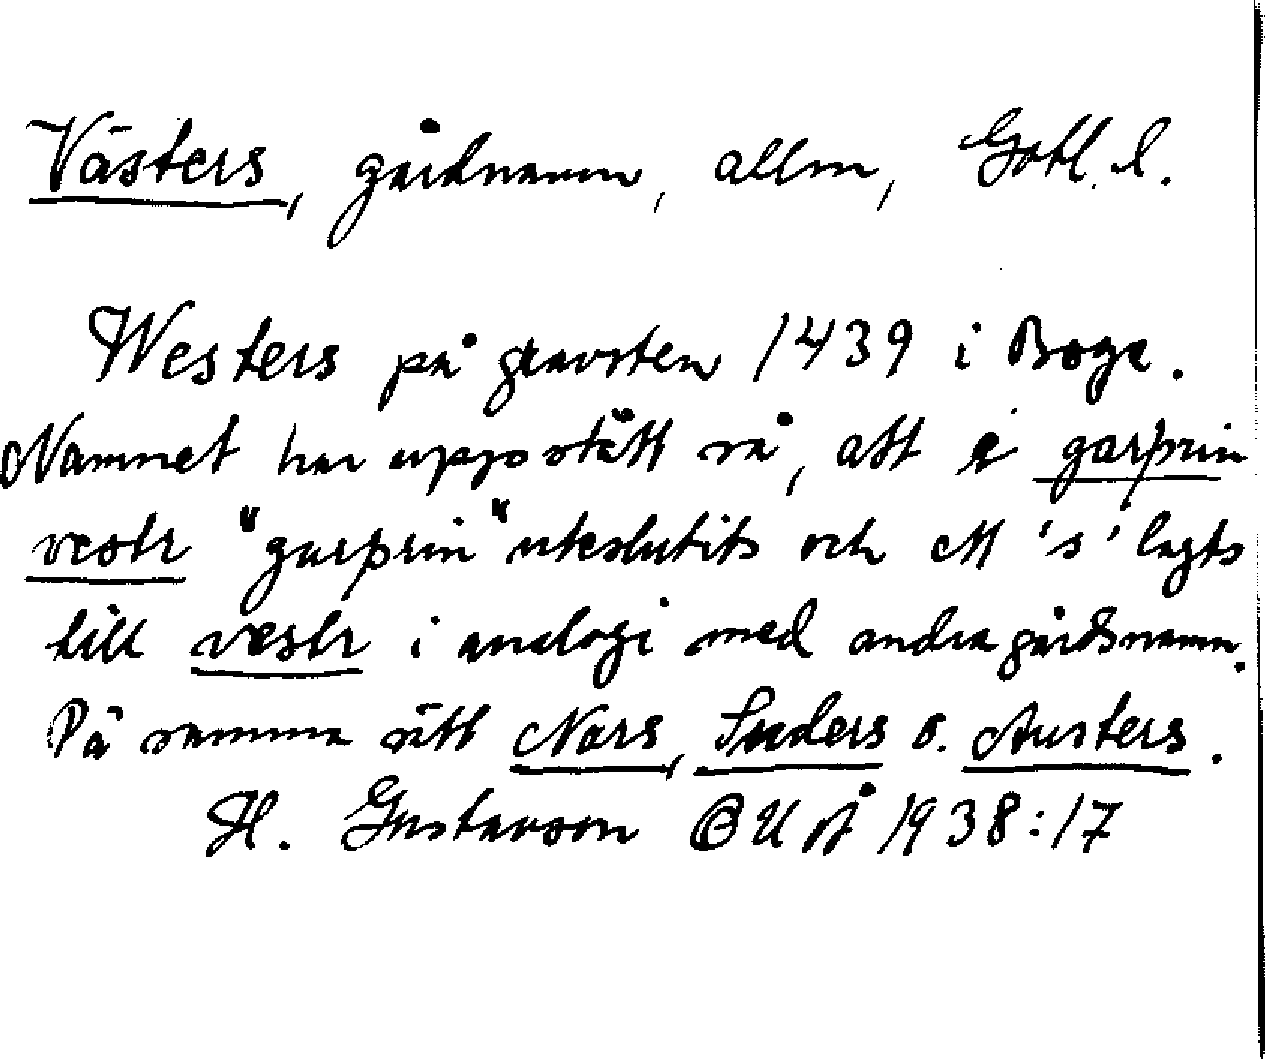 Västers, gårdnamn, allm, Gotl. l.
Westers på gravsten 1439 i Boge.
Namnet har uppstått så, att i garþrin
vestr "garþrin" uteslutits och ett 's' lagts
till vestr i analogi med andra gårdsnamn.
På samma sätt Nors, Suders o. Austers.
H. Gustavson 1938:17